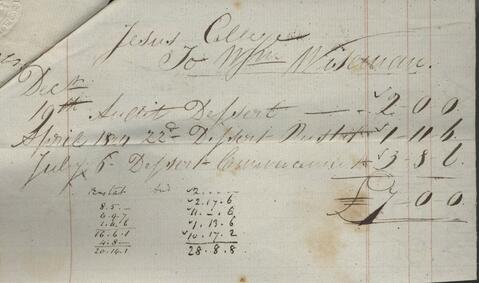 Jesus College
To Wm Wiseman.
Decr
19th Audit Dessert - - 2 0 0
April 22d Dessert Rustat 1 11 6
July 5 Dessert Commencement 3 8 6
£7 0 0
Rustat Aud 2
8.5.– 2.17.6
11.–.6
1.13.6
16.6.1 10.17.2
4.8– 28.8.8
20.14.1